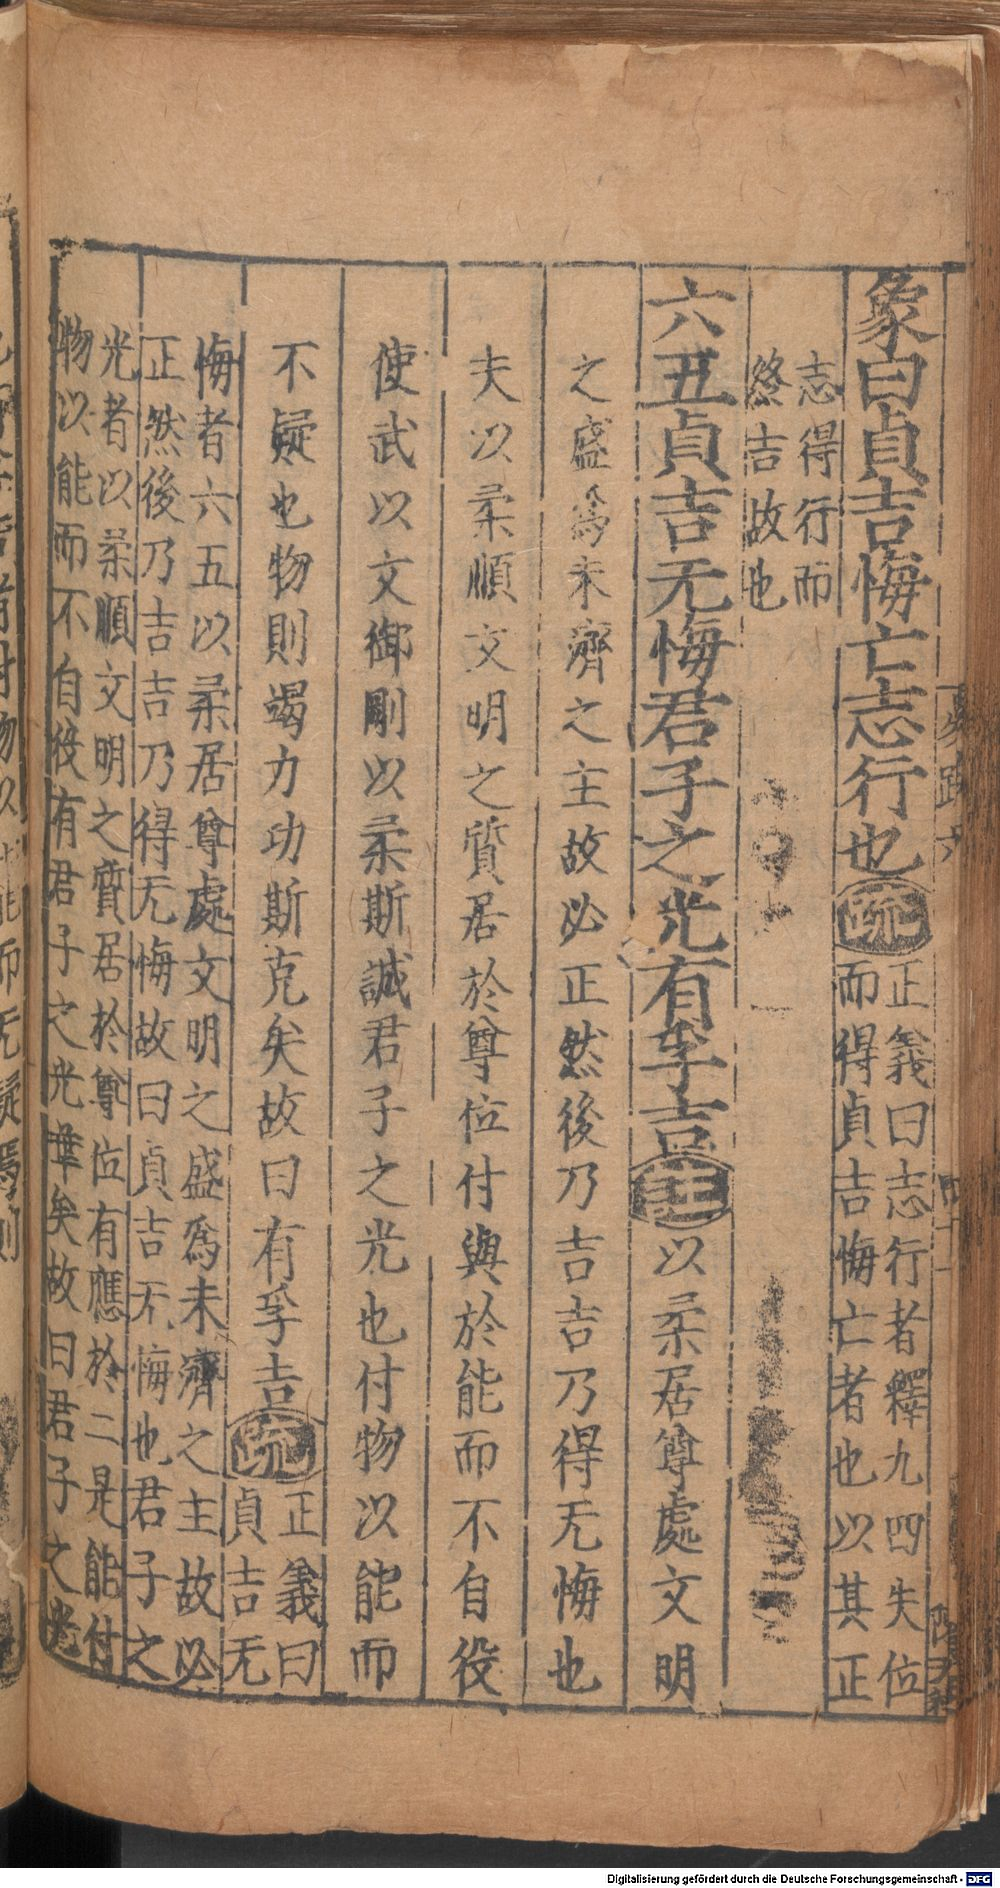 象曰貞吉悔亡志行也疏正義曰志行者釋九四失位
而得貞吉悔亡者也以其正
志得行而
終吉故也
六五貞吉无悔君子之光有孚吉注以柔居尊處文明
之盛爲未濟之主故必正然後乃吉吉乃得无悔也
夫以柔順文明之質居於尊位付與於能而不自役
使武以文御剛以柔斯誠君子之光也付物以能而
不疑也物則竭力功斯克矣故曰有孚吉疏正義曰
貞吉无
悔者六五以柔居尊處文明之盛爲未濟之主故必
正然後乃吉吉乃得无悔故曰貞吉无悔也君子之
光者以柔順文明之質居於尊位有應於二是能付
物以能而不自役有君子之光華矣故曰君子之光
易疏六
四十一
Digitalisierung gefördert durch die Deutsche Forschungsgemeinschaft - DFG